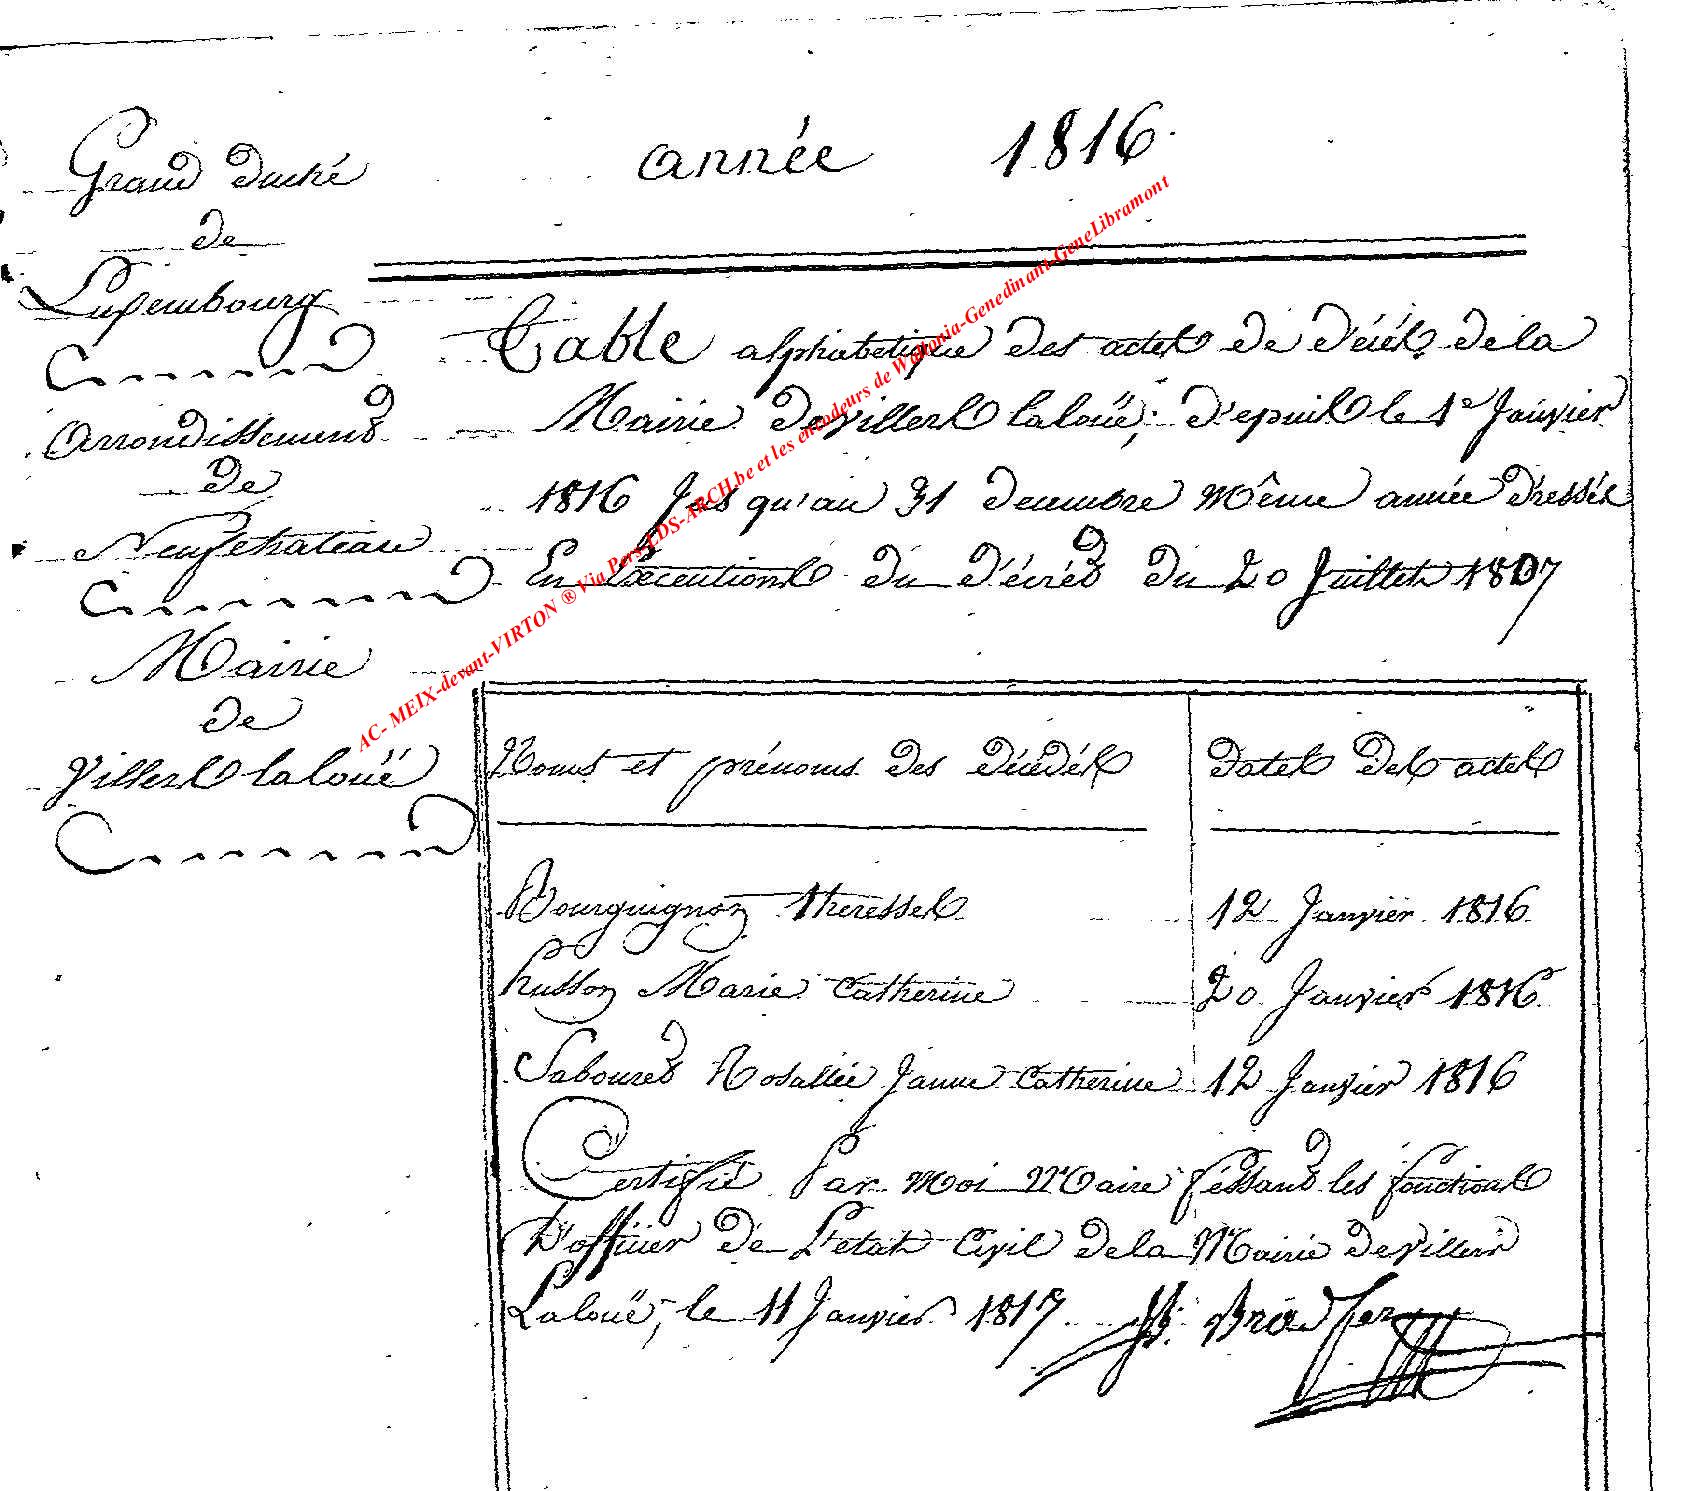 année 1816
Grand Duché
de
Luxembourg
Arrondissement
de
Neufchateau
Mairie
de
Villers laloüé
Table alphabetique des actes de décès de la
Mairie de villers laloüé; d'epuis le 1e Janvier
1816 Jusqu'au 31 decembre même année dressés
En Execution du décrét du 20 Juillet 1807
Noms et prénoms des décédés
dates des actes
Bourguignon theresse
12 Janvier 1816
husson Marie Catherine
20 Janvier 1816
Sabouret Rosallée Janne Catherine
12 Janvier 1816
Certifié Par moi Maire féssant les fonctions
D'officier de L'etat Civil de la Mairie de villers
Laloüé, le 11 Janvier 1817
AC- MEIX-devant-VIRTON ® Via Pers-EDS-ARCH.be et les encodeurs de Wallonia-Genedinant-GeneLibramont